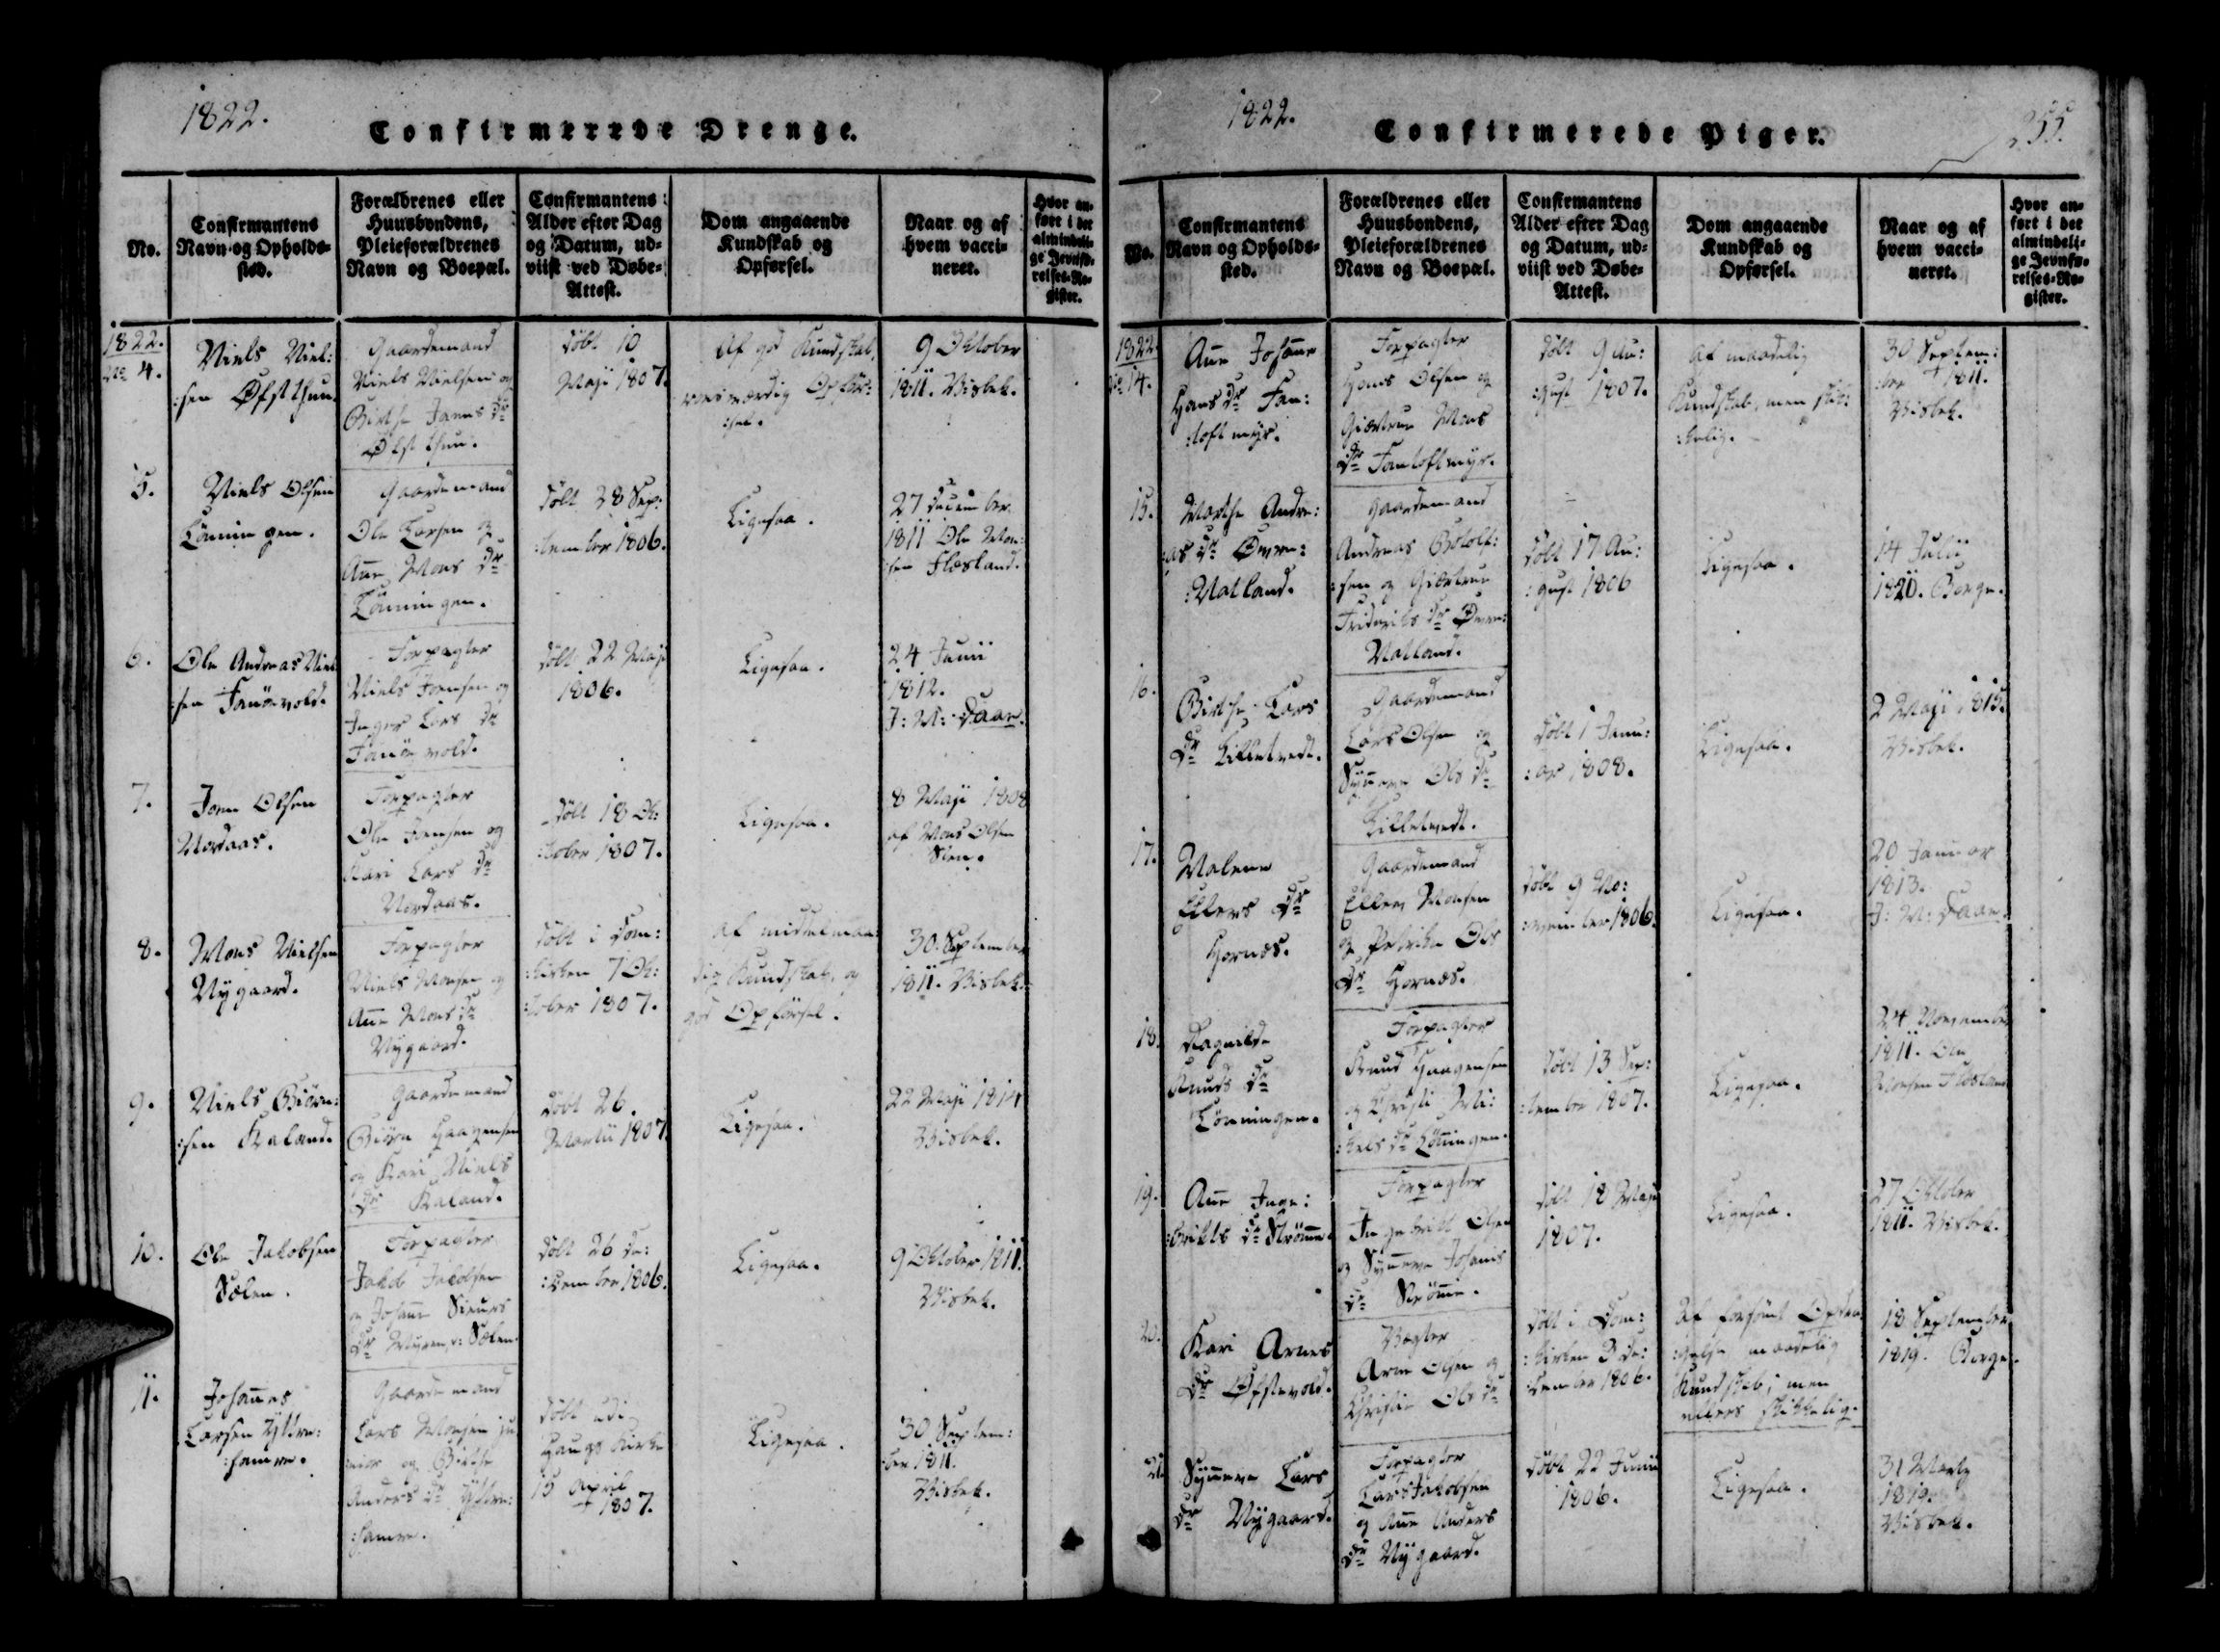 1822.
Confirmerede Drenge.
No.
Confirmantens
Navn og Opholds-
sted.
Forældrenes eller
Huusbondens,
Pleieforældrenes
Navn og Boepæl.
Confirmantens
Alder efter Dag
og Datum, ud-
viist ved Døbe-
Attest.
Dom angaaende
Kundskab og
Opførsel.
Naar og af
hvem vacci-
neret.
Hvor an-
ført i det
almindeli-
ge Jevnfø-
relses-Re-
gister.
1822.
No 4.
Niels Niel:
:sen Øfstthun
Gaardemand
Niels Nielsen og
Birthe Janns Dr
Øfstthun.
Døbt 10
Maji 1807.
Af god Kundskab,
værdig Opfør:
:sel.
9 Oktober
1811. Visbek.
5.
Niels Olsen
Lønningen.
Gaardemand
Ole Larsen og
Anne Mons Dr
Lønningen.
Døbt 28 Sep:
:tember 1806.
Ligesaa.
27 December
1811 Ole Mon:
:sen Flæsland.
6.
Ole Andreas Niel
:sen Fanøevold.
Forpagter
Niels Joensen og
Inger Lars Dr
Fanøevold.
Døbt 22 Maji
1806.
Ligesaa.
24 Junii
1812.
J: N: Daae.
7.
Joen Olsen
Nordaas.
Forpagter
Ole Joensen og
Kari Lars Dr
Nordaas.
Døbt 18 Ok:
:tober 1807.
Ligesaa.
8 Maji 1808
af Mons Olsen
Sten.
8.
Mons Nielsen
Nygaard.
Forpagter
Niels Monsen og
Anne Mons Dr
Nygaard.
Døbt i Dom:
:kirken 7 Ok:
:tober 1807.
Af middelmaa:
dig Kundskab, og
god Opførsel.
30 September
1811. Visbek.
9.
Niels Biørn:
:sen Kaland.
Gaardemand
Biørn Haagensen
og Kari Niels
Dr Kaland.
Døbt 26
Martii 1807.
Ligesaa.
22 Maji 1814
Visbek.
10.
Ole Jakobsen
Sælen.
Forpagter
Jakob Jakobsen
og Johanne Siurs
Dr Sælen.
Døbt 26 De:
:cember 1806.
Ligesaa.
9 Oktober 1811.
Visbek.
11.
Johannes
Larsen Yttre:
:hamre.
Gaardemand
Lars Monsen ju
:nior og Birthe
Anders Dr Yttre:
:hamre.
Døbt udi
Haugs Kirke
15 April
1807.
Ligesaa.
30 Septem:
:ber 1811.
Visbek.
1822.
255.
Confirmerede Piger.
No.
Confirmantens
Navn og Opholds-
sted.
Forældrenes eller
Huusbondens,
Pleieforældrenes
Navn og Boepæl.
Confirmantens
Alder efter Dag
og Datum, ud-
viist ved Døbe-
Attest.
Dom angaaende
Kundskab og
Opførsel.
Naar og af
hvem vacci-
neret.
Hvor an-
ført i det
almindeli-
ge Jevnfø-
relses-Re-
gister.
1822.
No 14.
Anne Johanne
Hans Dr Fan:
:toftmyr.
Forpagter
Hans Olsen og
Giertrue Mons
Dr Fantoftmyr.
Døbt 9 Au:
:gust 1807.
Af maadelig
Kundskab, men skik:
:kelig.
30 Septem:
:ber 1811.
Visbek.
15.
Marthe Andre:
:as Dr Øvre:
:Natland.
Gaardemand
Andreas Botolf:
:sen og Giertrue
Friderichs Dr Øvre:
Natland.
Døbt 17 Au:
:gust 1806
Ligesaa.
14 Julii
1820. Berge.
16.
Birthe Lars
Dr Lilletvedt.
Gaardemand
Lars Olsen og
Synneve Ols Dr
Lilletvedt.
Døbt 1 Janu:
:ar 1808.
Ligesaa.
2 Maji 1815.
Visbek.
17.
Malene
Ellers Dr
Hornæs.
Gaardemand
Eller Monsen
og Petrike Ols
Dr Hornæs.
Døbt 9 No:
:vember 1806.
Ligesaa.
20 Januar
1813.
J: N: Daae.
18.
Dagnilde
Knuds Dr
Lønningen.
Forpagter
Knud Haagensen
og Christi Mi:
:kels Dr Lønningen.
Døbt 13 Sep:
:tember 1807.
Ligesaa.
24 November
1811. Ole
Monsen Flæsland
19.
Anne Inge:
:brikts Dr Strømme.
Forpagter
Ingebrikt Olsen
og Synneve Johannis
Dr Strømme.
Døbt 18 Maji
1807.
Ligesaa.
27 Oktober
1811. Visbek.
20.
Kari Arnes
Dr Øfstevold.
Vægter
Arne Olsen og
Christie Ols Dr
Døbt i Dom:
:kirken 3 De:
:cember 1806.
Af forsømt Opdra
:gelse maadelig
Kundskab; men
ellers skikkelig.
18 September
1819. Berge.
21.
Synneve Lars
Dr Nygaard.
Forpagter
Lars Jakobsen
og Anne Anders
Dr Nygaard.
Døbt 22 Junii
1806.
Ligesaa.
31 Marty
1819.
Visbek.